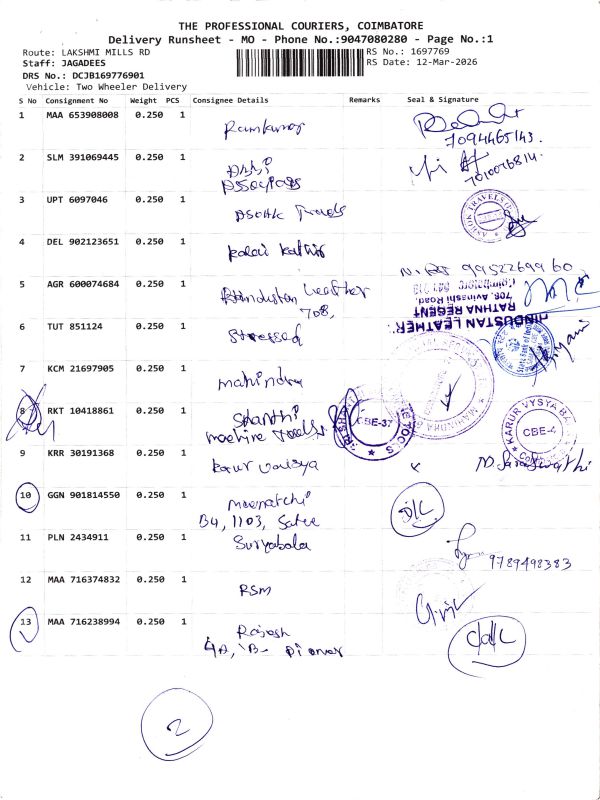 THE PROFESSIONAL COURIERS, COIMBATORE
Delivery Runsheet - MO - Phone No.:9047080280 - Page No.:1
Route: LAKSHMI MILLS RD
RS No.: 1697769
Staff: JAGADEES
RS Date: 12-Mar-2026
DRS No.: DCJB169776901
Vehicle: Two Wheeler Delivery
S No Consignment No Weight PCS Consignee Details Remarks Seal & Signature
1 MAA 653908008 0.250 1 Ramkumar
7094465143.
2 SLM 391069445 0.250 1
7010076814.
3 UPT 6097046 0.250 1 Ashok Travels
ASHOK TRAVELS
4 DEL 902123651 0.250 1 Kalai Kathir
9952269960
5 AGR 600074684 0.250 1 Hindustan Leather
708,
HINDUSTAN LEATHER
RATHNA REGENT
708, Avinashi Road,
Coimbatore
6 TUT 851124 0.250 1 Stressed
State Bank of India
7 KCM 21697905 0.250 1 mahindra
8 RKT 10418861 0.250 1 Shanthi
machine Tools
CBE-37
KARUR VYSYA BANK
CBE-4
9 KRR 30191368 0.250 1 Karur Vaisya
N. Saraswathi
10 GGN 901814550 0.250 1 Meenatchi
B4, 1103,
D/L
11 PLN 2434911 0.250 1 Suryabala
9789498383
12 MAA 716374832 0.250 1 RSM
13 MAA 716238994 0.250 1 Rajesh
4A, 'B-
D/L
2